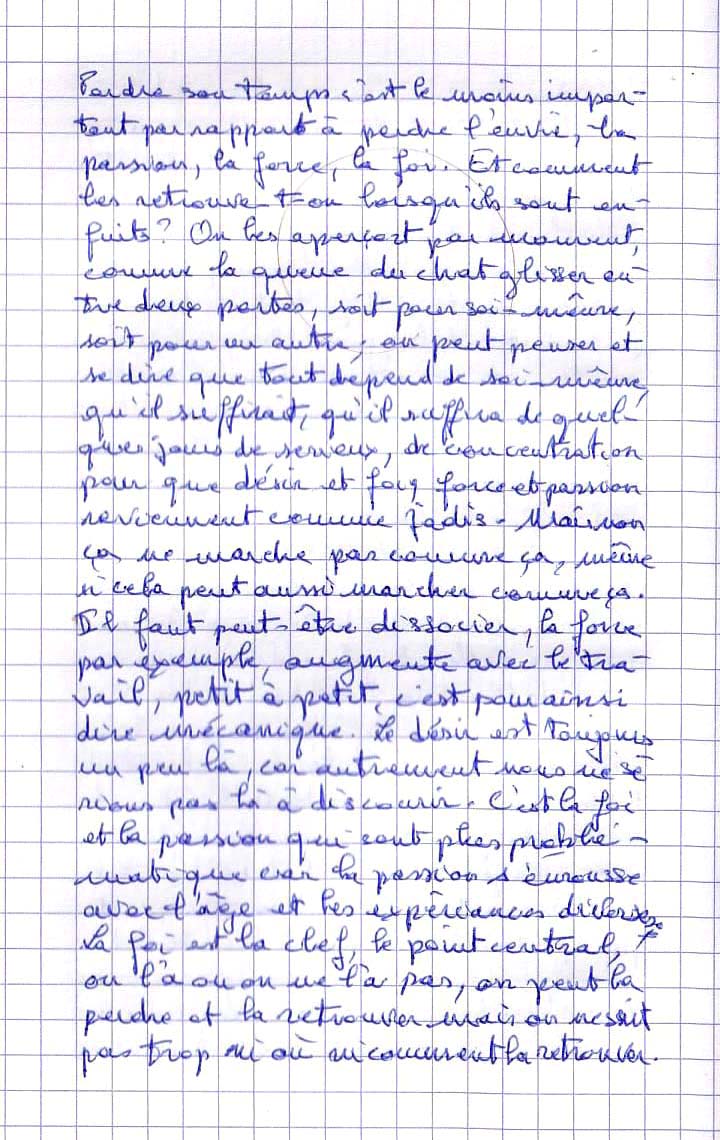 Perdre son temps c'est le moins impor-
tant par rapport à perdre l'envie, la
passion, la force, la foi. Et comment
les retrouve-t-on lorsqu'ils sont en-
fuits? On les aperçoit par moment,
comme la queue du chat glisser en-
tre deux portes, soit pour soi-même,
soit pour un autre; on peut penser et
se dire que tout dépend de soi-même,
qu'il suffirait, qu'il suffira de quel-
ques jours de sérieux, de concentration
pour que désir et foi, force et passion
reviennent comme jadis. Mais non
ça ne marche pas comme ça, même
si cela peut aussi marcher comme ça.
Il faut peut-être dissocier, la force
par exemple, augmente avec le tra-
vail, petit à petit, c'est pour ainsi
dire mécanique. Le désir est toujours
un peu là, car autrement nous ne se-
rions pas là à discourir. C'est la foi
et la passion qui sont plus problé-
matique car la passion s'émousse
avec l'âge et les expériances diverses.
La foi est la clef, le point central,
on l'à ou on ne l'à pas, on peut la
perdre et la retrouver mais on ne sait
pas trop ni où ni comment la retrouver.